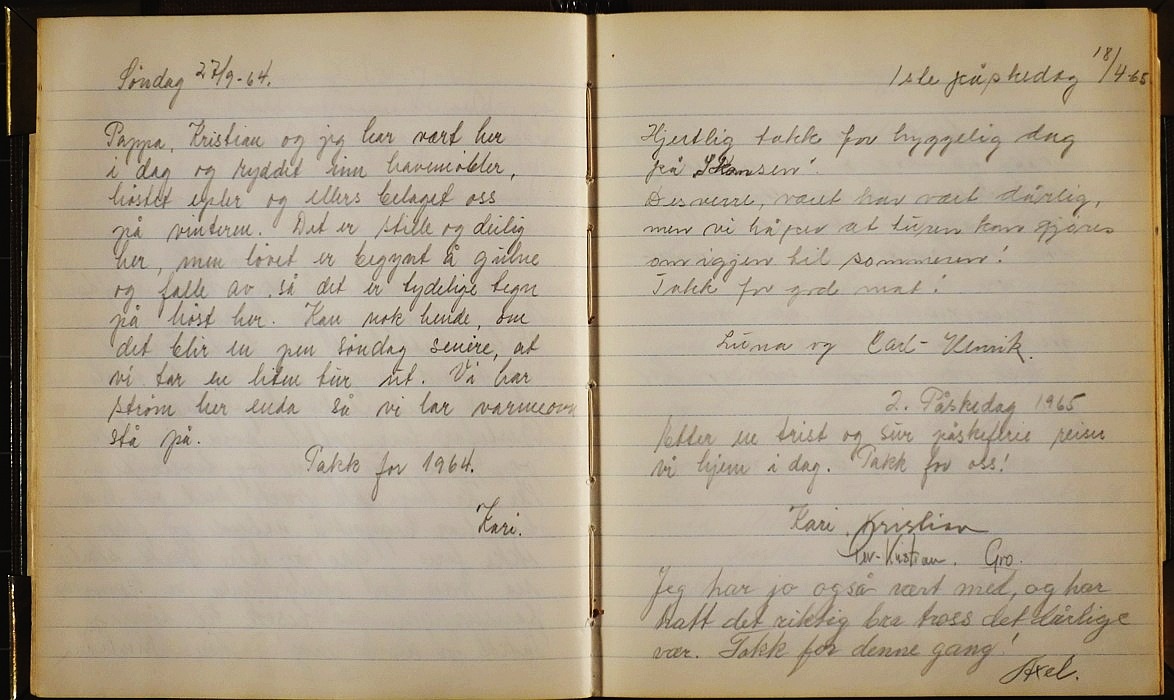 Søndag 27/9-64.
Pappa, Kristian og jeg har vært her
i dag og ryddet inn havemöbler,
høstet epler og ellers belaget oss
på vinteren. Det er stille og deilig
her, men løvet er begynt å gulne
og falle av, så det er tydelige tegn
på høst her. Kan nok hende, om
det blir en pen søndag senere, at
vi tar en liten tur ut. Vi har
strøm her enda så vi lar varmeovn
stå på.
Takk for 1964.
Kari.
1ste påskedag 18/4-65
Hjertlig takk for hyggelig dag
på Skansen!
Desverre, været har vært dårlig,
men vi håper at turen kan gjøres
om igjen til sommeren!
Takk for god mat!
og Carl-Henrik.
2. Påskedag 1965
Etter en trist og sur påskeferie reiser
vi hjem i dag. Takk for oss!
Kari, Kristian
Per-Kristian. Gro.
Jeg har jo også vært med, og har
hatt det riktig bra tross det dårlige
vær. Takk for denne gang!
Axel.